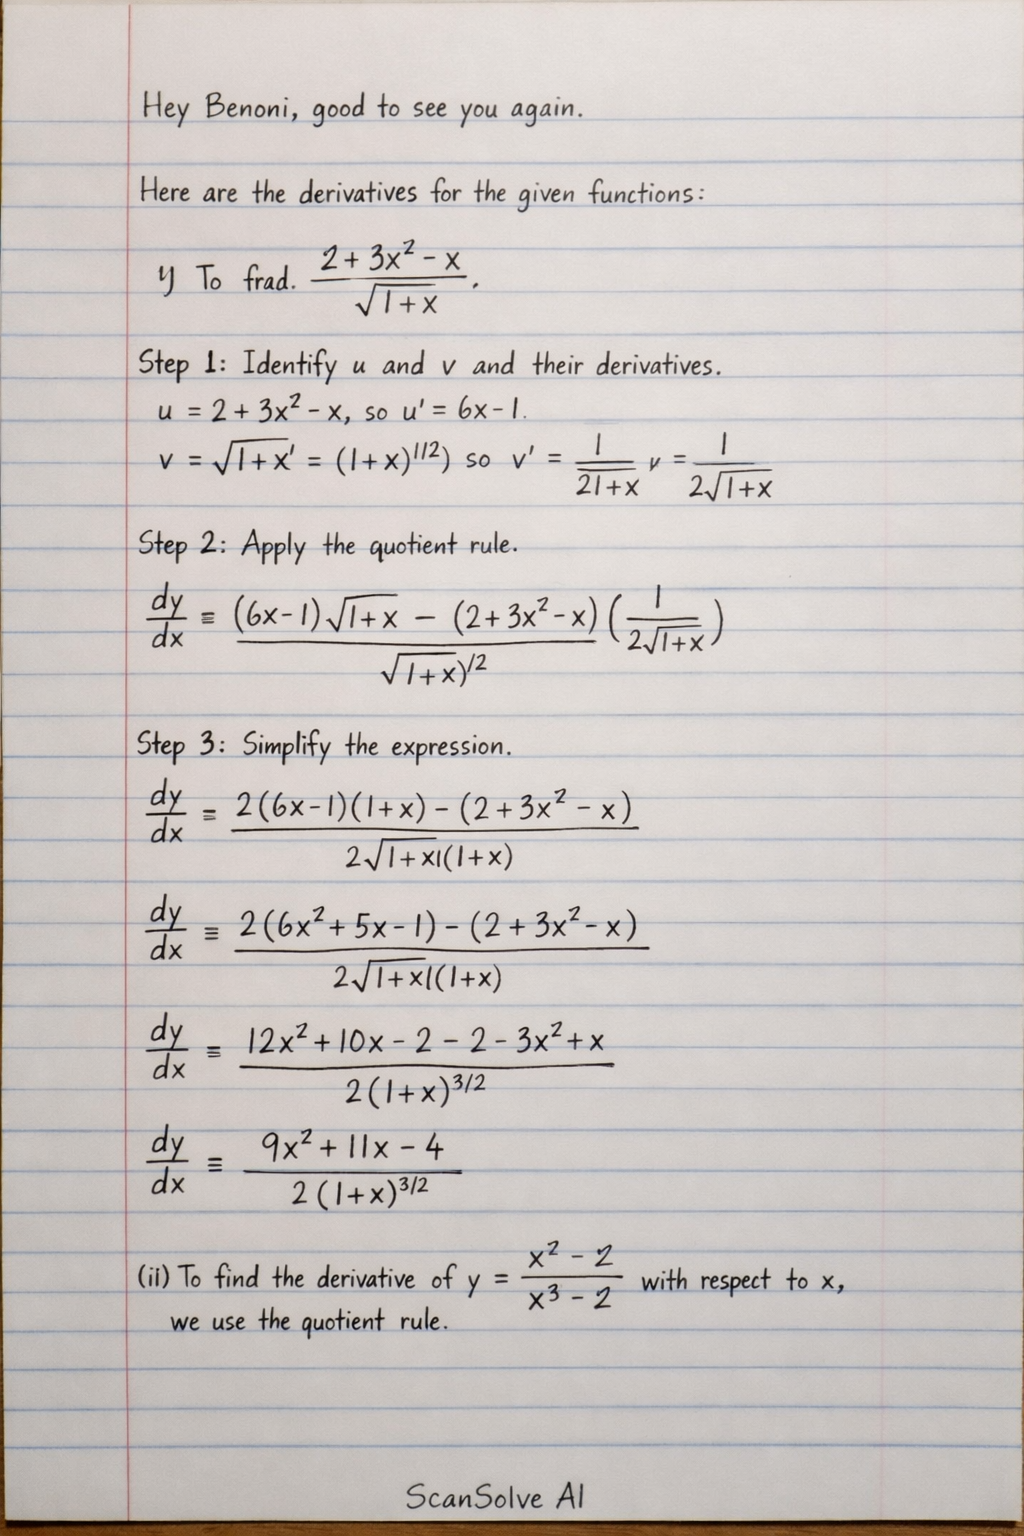 Hey Benoni, good to see you again.
Here are the derivatives for the given functions:
y To frad. (2 + 3x² - x)/√(1+x).
Step 1: Identify u and v and their derivatives.
u = 2 + 3x² - x, so u' = 6x - 1.
v = √(1+x)' = (1+x)^(1/2)) so v' = 1/(21+x) v = 1/(2√(1+x))
Step 2: Apply the quotient rule.
dy/dx ≡ (6x-1)√(1+x) - (2+3x²-x)(1/(2√(1+x))) / √(1+x))^(/2)
Step 3: Simplify the expression.
dy/dx ≡ 2(6x-1)(1+x) - (2+3x²-x) / 2√(1+x)|(1+x)
dy/dx ≡ 2(6x²+5x-1) - (2+3x²-x) / 2√(1+x)|(1+x)
dy/dx ≡ 12x²+10x-2-2-3x²+x / 2(1+x)^(3/2)
dy/dx ≡ 9x²+11x-4 / 2(1+x)^(3/2)
(ii) To find the derivative of y = (x²-2)/(x³-2) with respect to x,
we use the quotient rule.
ScanSolve AI